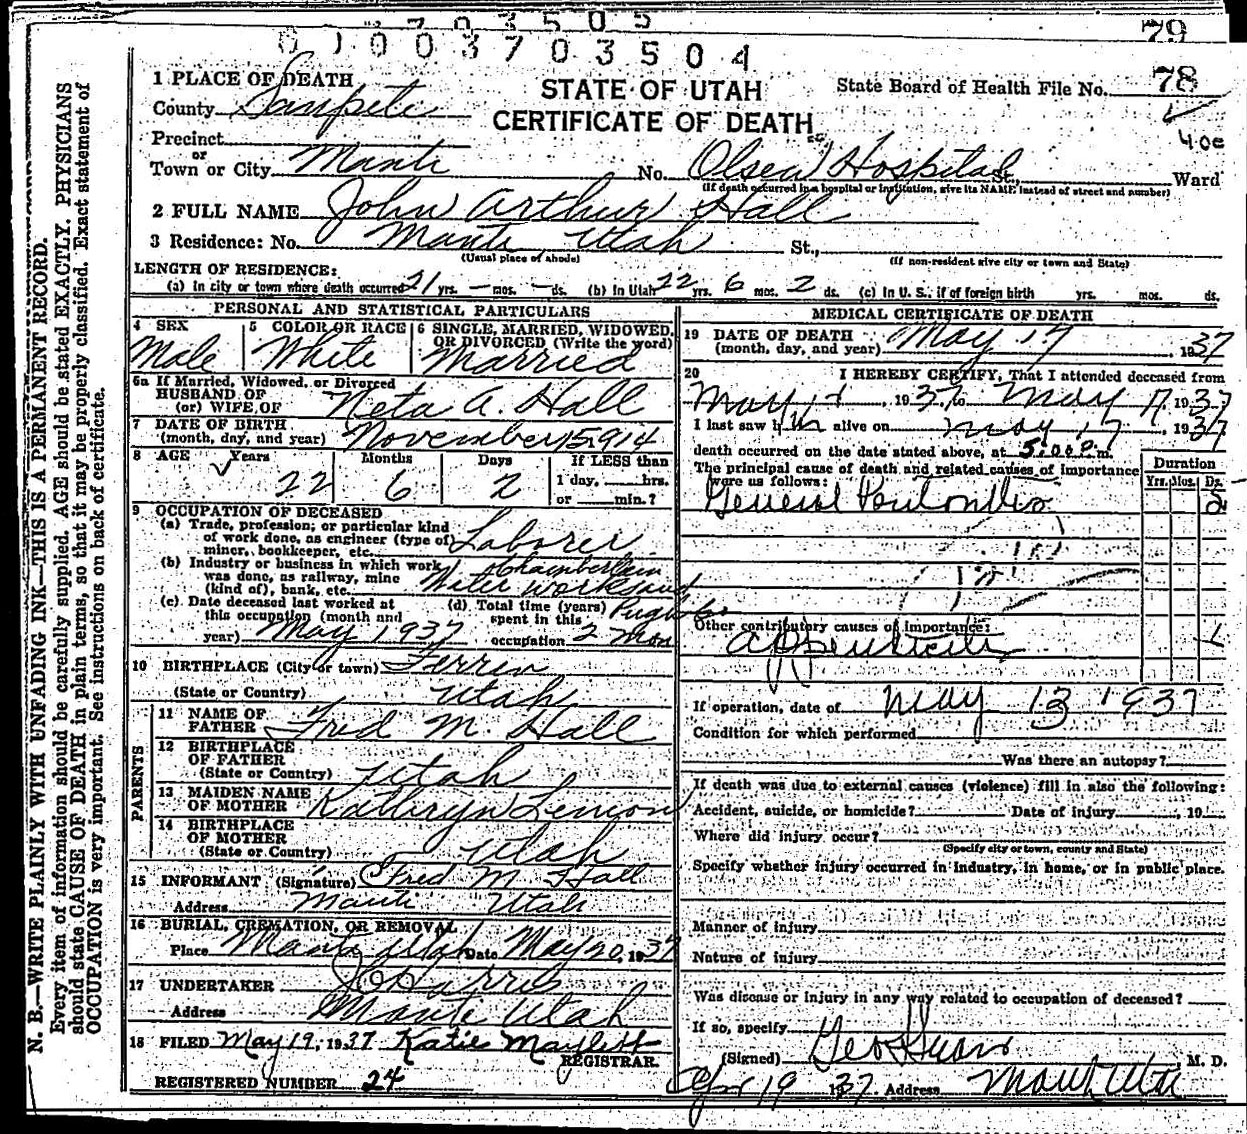 79
3703505
01003703504
78
400
1 PLACE OF DEATH
County Sanpete
STATE OF UTAH
CERTIFICATE OF DEATH
State Board of Health File No.
Precinct
or
Town or City Manti No. Olsen Hospital St., Ward
(If death occurred in a hospital or institution, give its NAME instead of street and number)
2 FULL NAME John Arthur Hall
3 Residence: No. Manti, Utah St.,
(Usual place of abode) (If non-resident give city or town and State)
LENGTH OF RESIDENCE:
(a) In city or town where death occurred 21 yrs. - mos. - ds. (b) In Utah 22 yrs. 6 mos. 2 ds. (c) In U. S., if of foreign birth yrs. mos. ds.
PERSONAL AND STATISTICAL PARTICULARS
4 SEX Male
5 COLOR OR RACE White
6 SINGLE, MARRIED, WIDOWED, OR DIVORCED (Write the word) Married
6a If Married, Widowed, or Divorced
HUSBAND OF
(or) WIFE OF Neta A. Hall
7 DATE OF BIRTH
(month, day, and year) November 15 1914
8 AGE Years 22 Months 6 Days 2
If LESS than
1 day, hrs.
or min.?
9 OCCUPATION OF DECEASED
(a) Trade, profession, or particular kind
of work done, as engineer (type of) Laborer
miner, bookkeeper, etc.
(b) Industry or business in which work Chamberlain
was done, as railway, mine Water works and
(kind of), bank, etc.
(c) Date deceased last worked at
this occupation (month and
year) May 1937
(d) Total time (years)
spent in this
occupation 2 mon
10 BIRTHPLACE (City or town) Ferron
(State or Country) Utah
PARENTS
11 NAME OF
FATHER Fred M. Hall
12 BIRTHPLACE
OF FATHER
(State or Country) Utah
13 MAIDEN NAME
OF MOTHER Kathryn Lemon
14 BIRTHPLACE
OF MOTHER
(State or Country) Utah
15 INFORMANT (Signature) Fred M. Hall
Address Manti Utah
16 BURIAL, CREMATION, OR REMOVAL
Place Manti Utah Date May 20, 1937
17 UNDERTAKER Harris
Address Manti Utah
18 FILED May 19, 1937 Katie Maylett
REGISTRAR.
REGISTERED NUMBER 24
MEDICAL CERTIFICATE OF DEATH
19 DATE OF DEATH
(month, day, and year) May 17, 1937
20 I HEREBY CERTIFY, That I attended deceased from
May, 1937 to May 17, 1937
I last saw him alive on May 17, 1937
death occurred on the date stated above, at 5:00 P.m.
The principal cause of death and related causes of importance
were as follows:
Duration
Yrs. Mos. Ds.
General Peritonitis
Other contributory causes of importance:
Appendicitis
If operation, date of May 13 1937
Condition for which performed
Was there an autopsy?
If death was due to external causes (violence) fill in also the following:
Accident, suicide, or homicide? Date of injury, 19
Where did injury occur?
(Specify city or town, county and State)
Specify whether injury occurred in industry, in home, or in public place.
Manner of injury
Nature of injury
Was disease or injury in any way related to occupation of deceased?
If so, specify
(Signed) M. D.
19 1937 Address Manti Utah
N. B.—WRITE PLAINLY WITH UNFADING INK—THIS IS A PERMANENT RECORD.
Every item of information should be carefully supplied. AGE should be stated EXACTLY. PHYSICIANS
should state CAUSE OF DEATH in plain terms, so that it may be properly classified. Exact statement of
OCCUPATION is very important. See instructions on back of certificate.